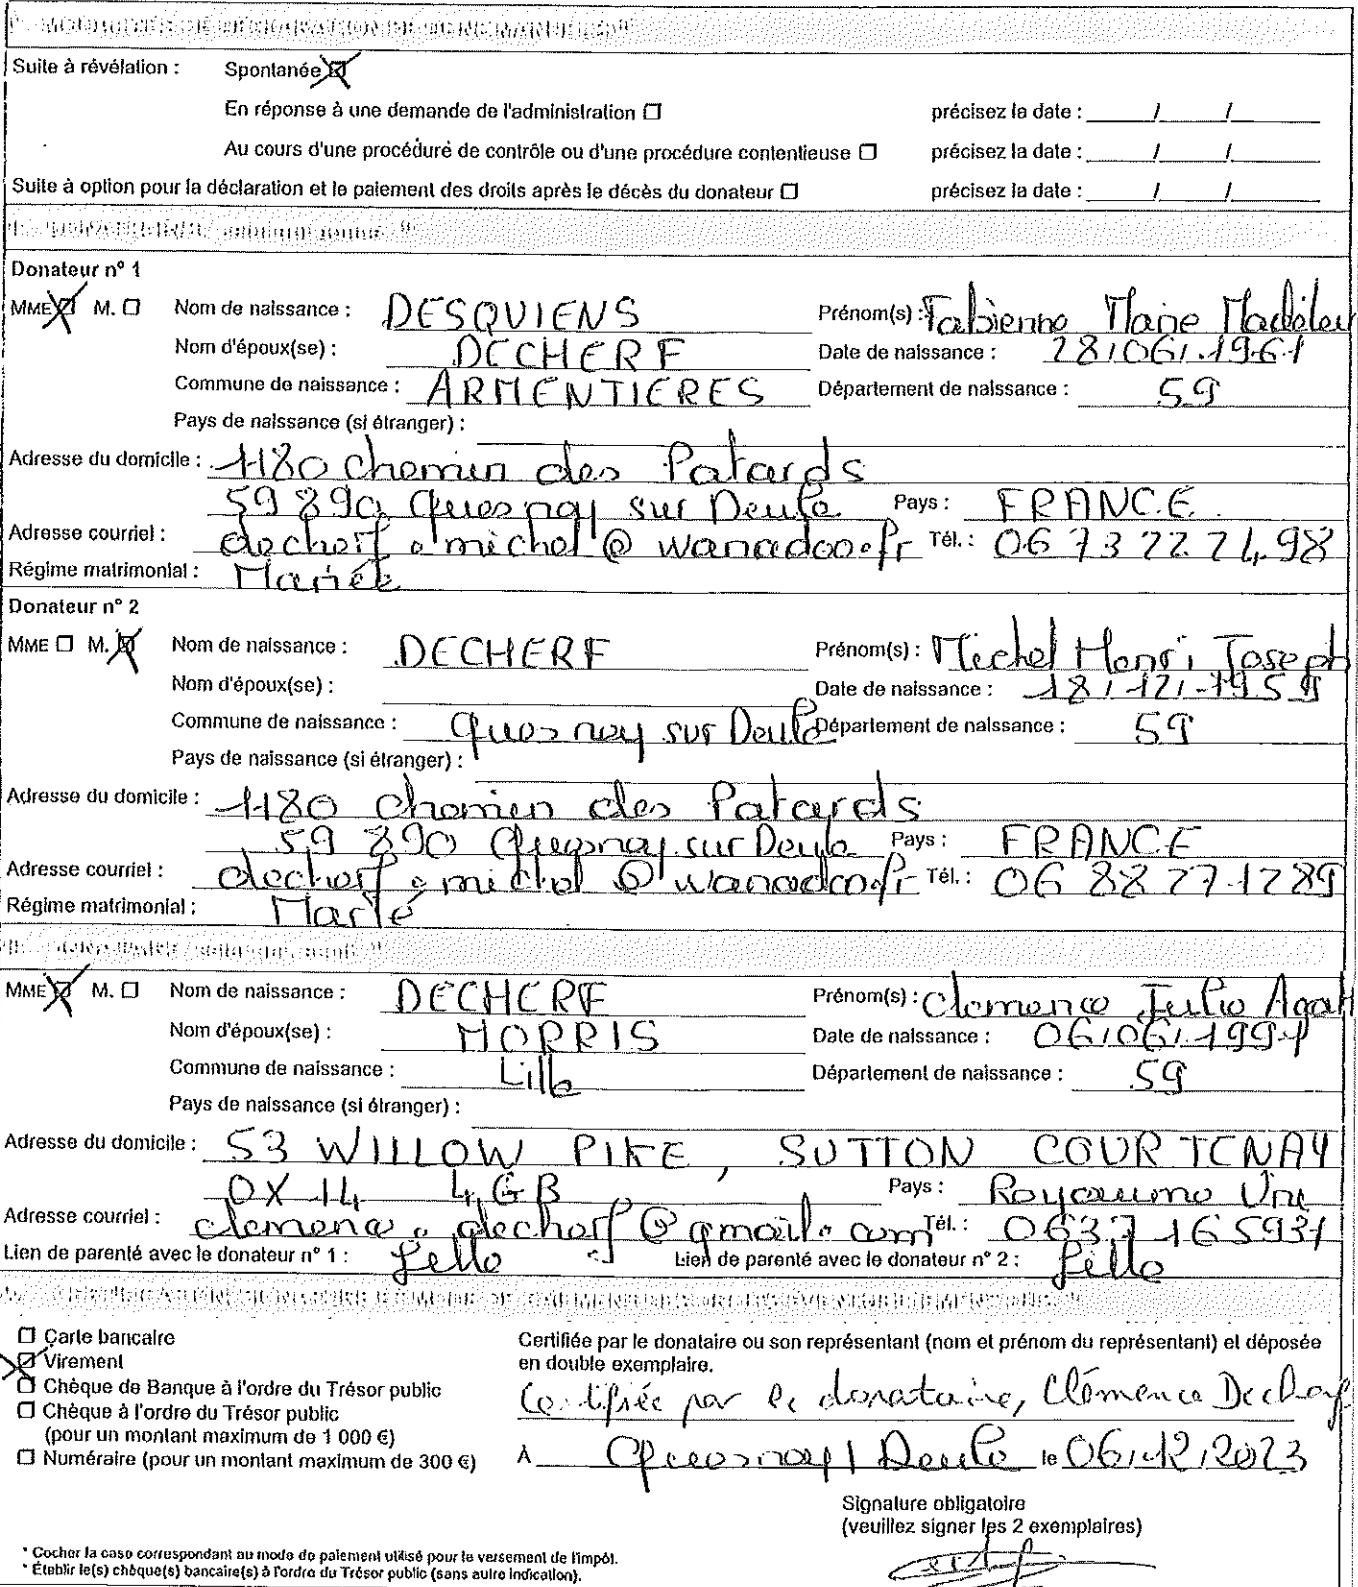 Suite à révélation : Spontanée ☒
En réponse à une demande de l'administration ☐ précisez la date : ____/____/____
Au cours d'une procédure de contrôle ou d'une procédure contentieuse ☐ précisez la date : ____/____/____
Suite à option pour la déclaration et le paiement des droits après le décès du donateur ☐ précisez la date : ____/____/____
Donateur n° 1
MME ☒ M. ☐ Nom de naissance : DESQUIENS Prénom(s) : Fabienne Marie Madelei
Nom d'époux(se) : DECHERF Date de naissance : 28/06/1961
Commune de naissance : ARMENTIERES Département de naissance : 59
Pays de naissance (si étranger) :
Adresse du domicile : 1180 chemin des Patards
59 890 Quesnoy sur Deule Pays : FRANCE
Adresse courriel : decherf.michel@wanadoo.fr Tél. : 06 73 22 74 98
Régime matrimonial : Mariée
Donateur n° 2
MME ☐ M. ☒ Nom de naissance : DECHERF Prénom(s) : Michel Henri Joseph
Nom d'époux(se) : Date de naissance : 18/12/1959
Commune de naissance : Quesnoy sur Deule Département de naissance : 59
Pays de naissance (si étranger) :
Adresse du domicile : 1180 chemin des Patards
59 890 Quesnoy sur Deule Pays : FRANCE
Adresse courriel : decherf.michel@wanadoo.fr Tél. : 06 88 27 12 89
Régime matrimonial : Marié
MME ☒ M. ☐ Nom de naissance : DECHERF Prénom(s) : Clemence Julie Agat
Nom d'époux(se) : MORRIS Date de naissance : 06/06/1991
Commune de naissance : Lille Département de naissance : 59
Pays de naissance (si étranger) :
Adresse du domicile : 53 WILLOW PIKE, SUTTON COURTENAY
OX14 4GB Pays : Royaume Uni
Adresse courriel : clemence.decherf@gmail.com Tél. : 0637165931
Lien de parenté avec le donateur n° 1 : fille Lien de parenté avec le donateur n° 2 : fille
☐ Carte bancaire
☒ Virement
☐ Chèque de Banque à l'ordre du Trésor public
☐ Chèque à l'ordre du Trésor public
(pour un montant maximum de 1 000 €)
☐ Numéraire (pour un montant maximum de 300 €)
Certifiée par le donataire ou son représentant (nom et prénom du représentant) et déposée
en double exemplaire.
Certifiée par le donataire, Clémence Decherf
À Quesnoy / Deule le 06/12/2023
Signature obligatoire
(veuillez signer les 2 exemplaires)
* Cocher la case correspondant au mode de paiement utilisé pour le versement de l'impôt.
* Établir le(s) chèque(s) bancaire(s) à l'ordre du Trésor public (sans autre indication).